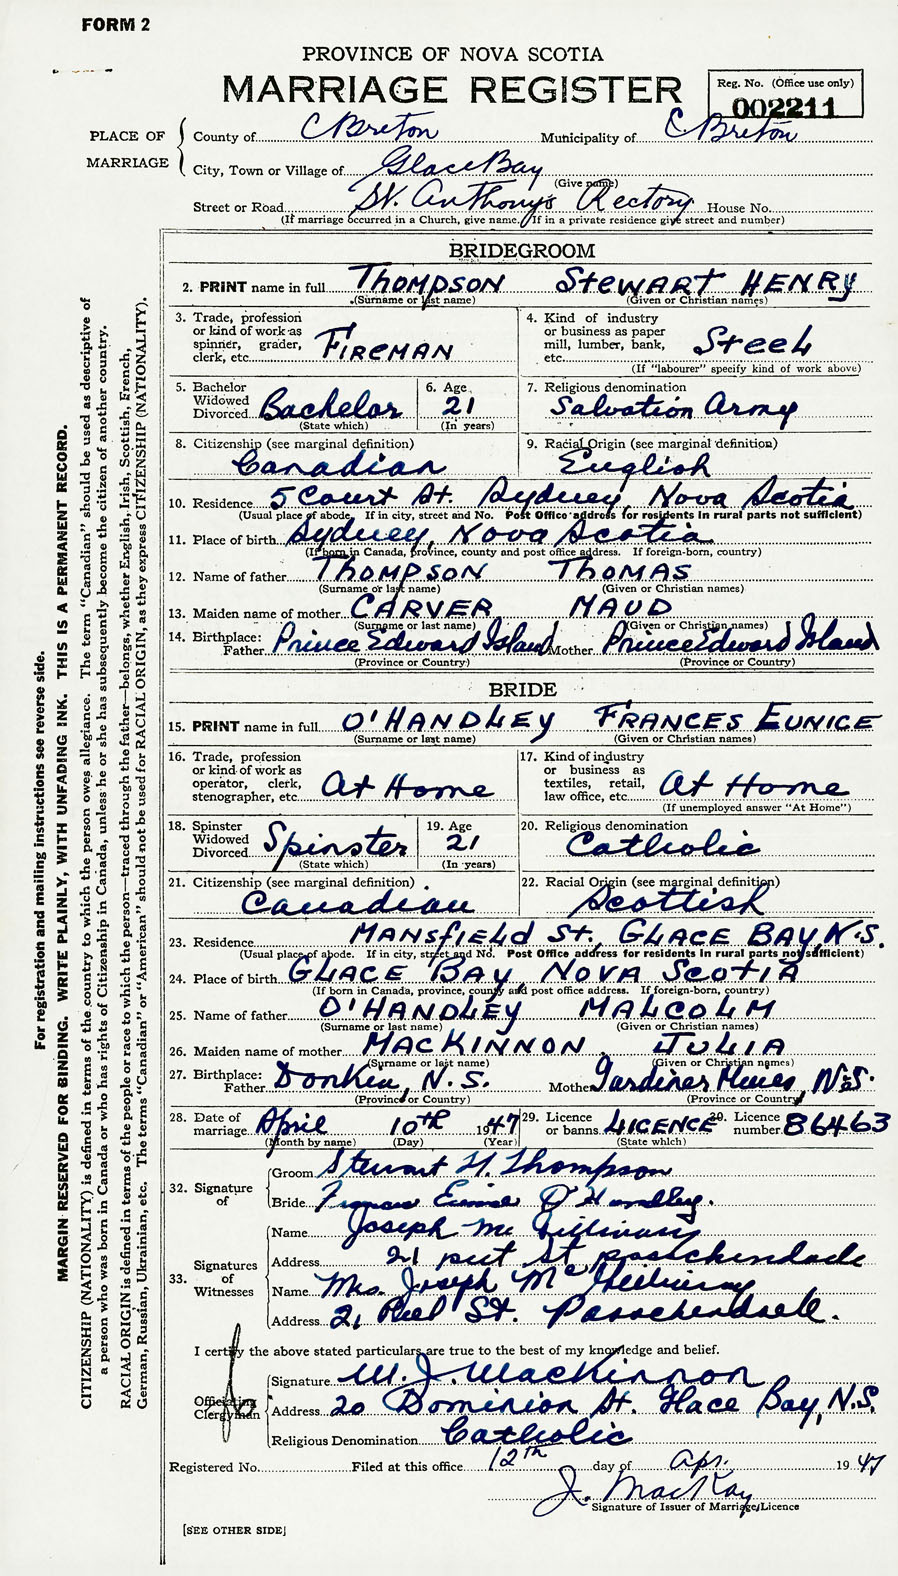 FORM 2
PROVINCE OF NOVA SCOTIA
MARRIAGE REGISTER
Reg. No. (Office use only)
002211
PLACE OF MARRIAGE
County of C Breton Municipality of C Breton
City, Town or Village of Glace Bay
(Give name)
Street or Road St. Anthony's Rectory House No.
(If marriage occurred in a Church, give name. If in a private residence give street and number)
BRIDEGROOM
2. PRINT name in full THOMPSON STEWART HENRY
(Surname or last name) (Given or Christian names)
3. Trade, profession or kind of work as spinner, grader, clerk, etc. FIREMAN
4. Kind of industry or business as paper mill, lumber, bank, etc. Steel
(If "labourer" specify kind of work above)
5. Bachelor Widowed Divorced Bachelor
(State which)
6. Age 21
(In years)
7. Religious denomination
Salvation Army
8. Citizenship (see marginal definition)
Canadian
9. Racial Origin (see marginal definition)
English
10. Residence 5 Court St. Sydney, Nova Scotia
(Usual place of abode. If in city, street and No. Post Office address for residents in rural parts not sufficient)
11. Place of birth Sydney, Nova Scotia
(If born in Canada, province, county and post office address. If foreign-born, country)
12. Name of father THOMPSON THOMAS
(Surname or last name) (Given or Christian names)
13. Maiden name of mother CARVER MAUD
(Surname or last name) (Given or Christian names)
14. Birthplace: Father Prince Edward Island Mother Prince Edward Island
(Province or Country) (Province or Country)
BRIDE
15. PRINT name in full O'HANDLEY FRANCES EUNICE
(Surname or last name) (Given or Christian names)
16. Trade, profession or kind of work as operator, clerk, stenographer, etc. At Home
17. Kind of industry or business as textiles, retail, law office, etc. At Home
(If unemployed answer "At Home")
18. Spinster Widowed Divorced Spinster
(State which)
19. Age 21
(In years)
20. Religious denomination
Catholic
21. Citizenship (see marginal definition)
Canadian
22. Racial Origin (see marginal definition)
Scottish
23. Residence MANSFIELD St., GLACE BAY, N.S.
(Usual place of abode. If in city, street and No. Post Office address for residents in rural parts not sufficient)
24. Place of birth GLACE BAY, NOVA SCOTIA
(If born in Canada, province, county and post office address. If foreign-born, country)
25. Name of father O'HANDLEY MALCOLM
(Surname or last name) (Given or Christian names)
26. Maiden name of mother MACKINNON JULIA
(Surname or last name) (Given or Christian names)
27. Birthplace: Father Donkin, N.S. Mother Gardiner Mines, N.S.
(Province or Country) (Province or Country)
28. Date of marriage April 10th 1947
(Month by name) (Day) (Year)
29. Licence or banns LICENCE
(State which)
Licence number 86463
32. Signature of
Groom Stewart H. Thompson
Bride Frances Eunice O'Handley.
33. Signatures of Witnesses
Name Joseph Mc
Address 21 st passchendade
Name Mrs. Joseph Mc
Address 21 St. Passchendaell.
I certify the above stated particulars are true to the best of my knowledge and belief.
Officiating Clergyman
Signature W. J. MacKinnon
Address 20 Dominion St. Glace Bay, N.S.
Religious Denomination Catholic
Registered No. Filed at this office 12th day of Apr. 1947
J. MacKay
Signature of Issuer of Marriage Licence
[SEE OTHER SIDE]
For registration and mailing instructions see reverse side.
MARGIN RESERVED FOR BINDING. WRITE PLAINLY, WITH UNFADING INK. THIS IS A PERMANENT RECORD.
CITIZENSHIP (NATIONALITY) is defined in terms of the country to which the person owes allegiance. The term "Canadian" should be used as descriptive of
a person who was born in Canada or who has rights of Citizenship in Canada, unless he or she has subsequently become the citizen of another country.
RACIAL ORIGIN is defined in terms of the people or race to which the person—traced through the father—belongs, whether English, Irish, Scottish, French,
German, Russian, Ukrainian, etc. The terms "Canadian" or "American" should not be used for RACIAL ORIGIN, as they express CITIZENSHIP (NATIONALITY).